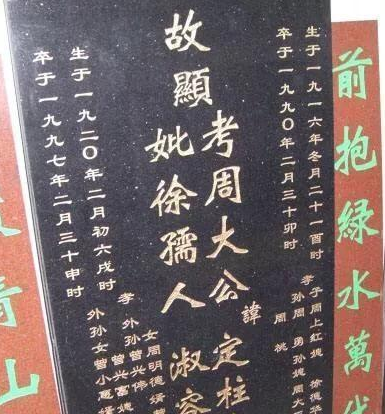 前抱綠水萬代
生于一九一六年冬月二十一酉时
卒于一九九〇年二月三十卯时
孝子周上红媳徐德
孙周勇孙媳周大
周桃
故顯
考周大公諱定柱
妣徐孺人淑容
女周明德婿曾
孝外孙曾兴伟
曾兴富媳
外孙女曾小慧婿
生于一九二〇年二月初六戌时
卒于一九九七年二月三十申时
青山